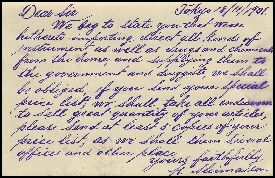 Dear Sir Tokyo 18/11/1901.
We beg to state you that we are
hitherto importing direct all kinds of
instrument as well as drugs and chemicals
from the home, and supplying them to
the government and druggists, we shall
be obliged, if you send your special
price list, we shall take all endeavour
to sell great quantity of your articles,
please send at least 3 copies of your
price list, as we shall them several
offices and other place
yours faithfully